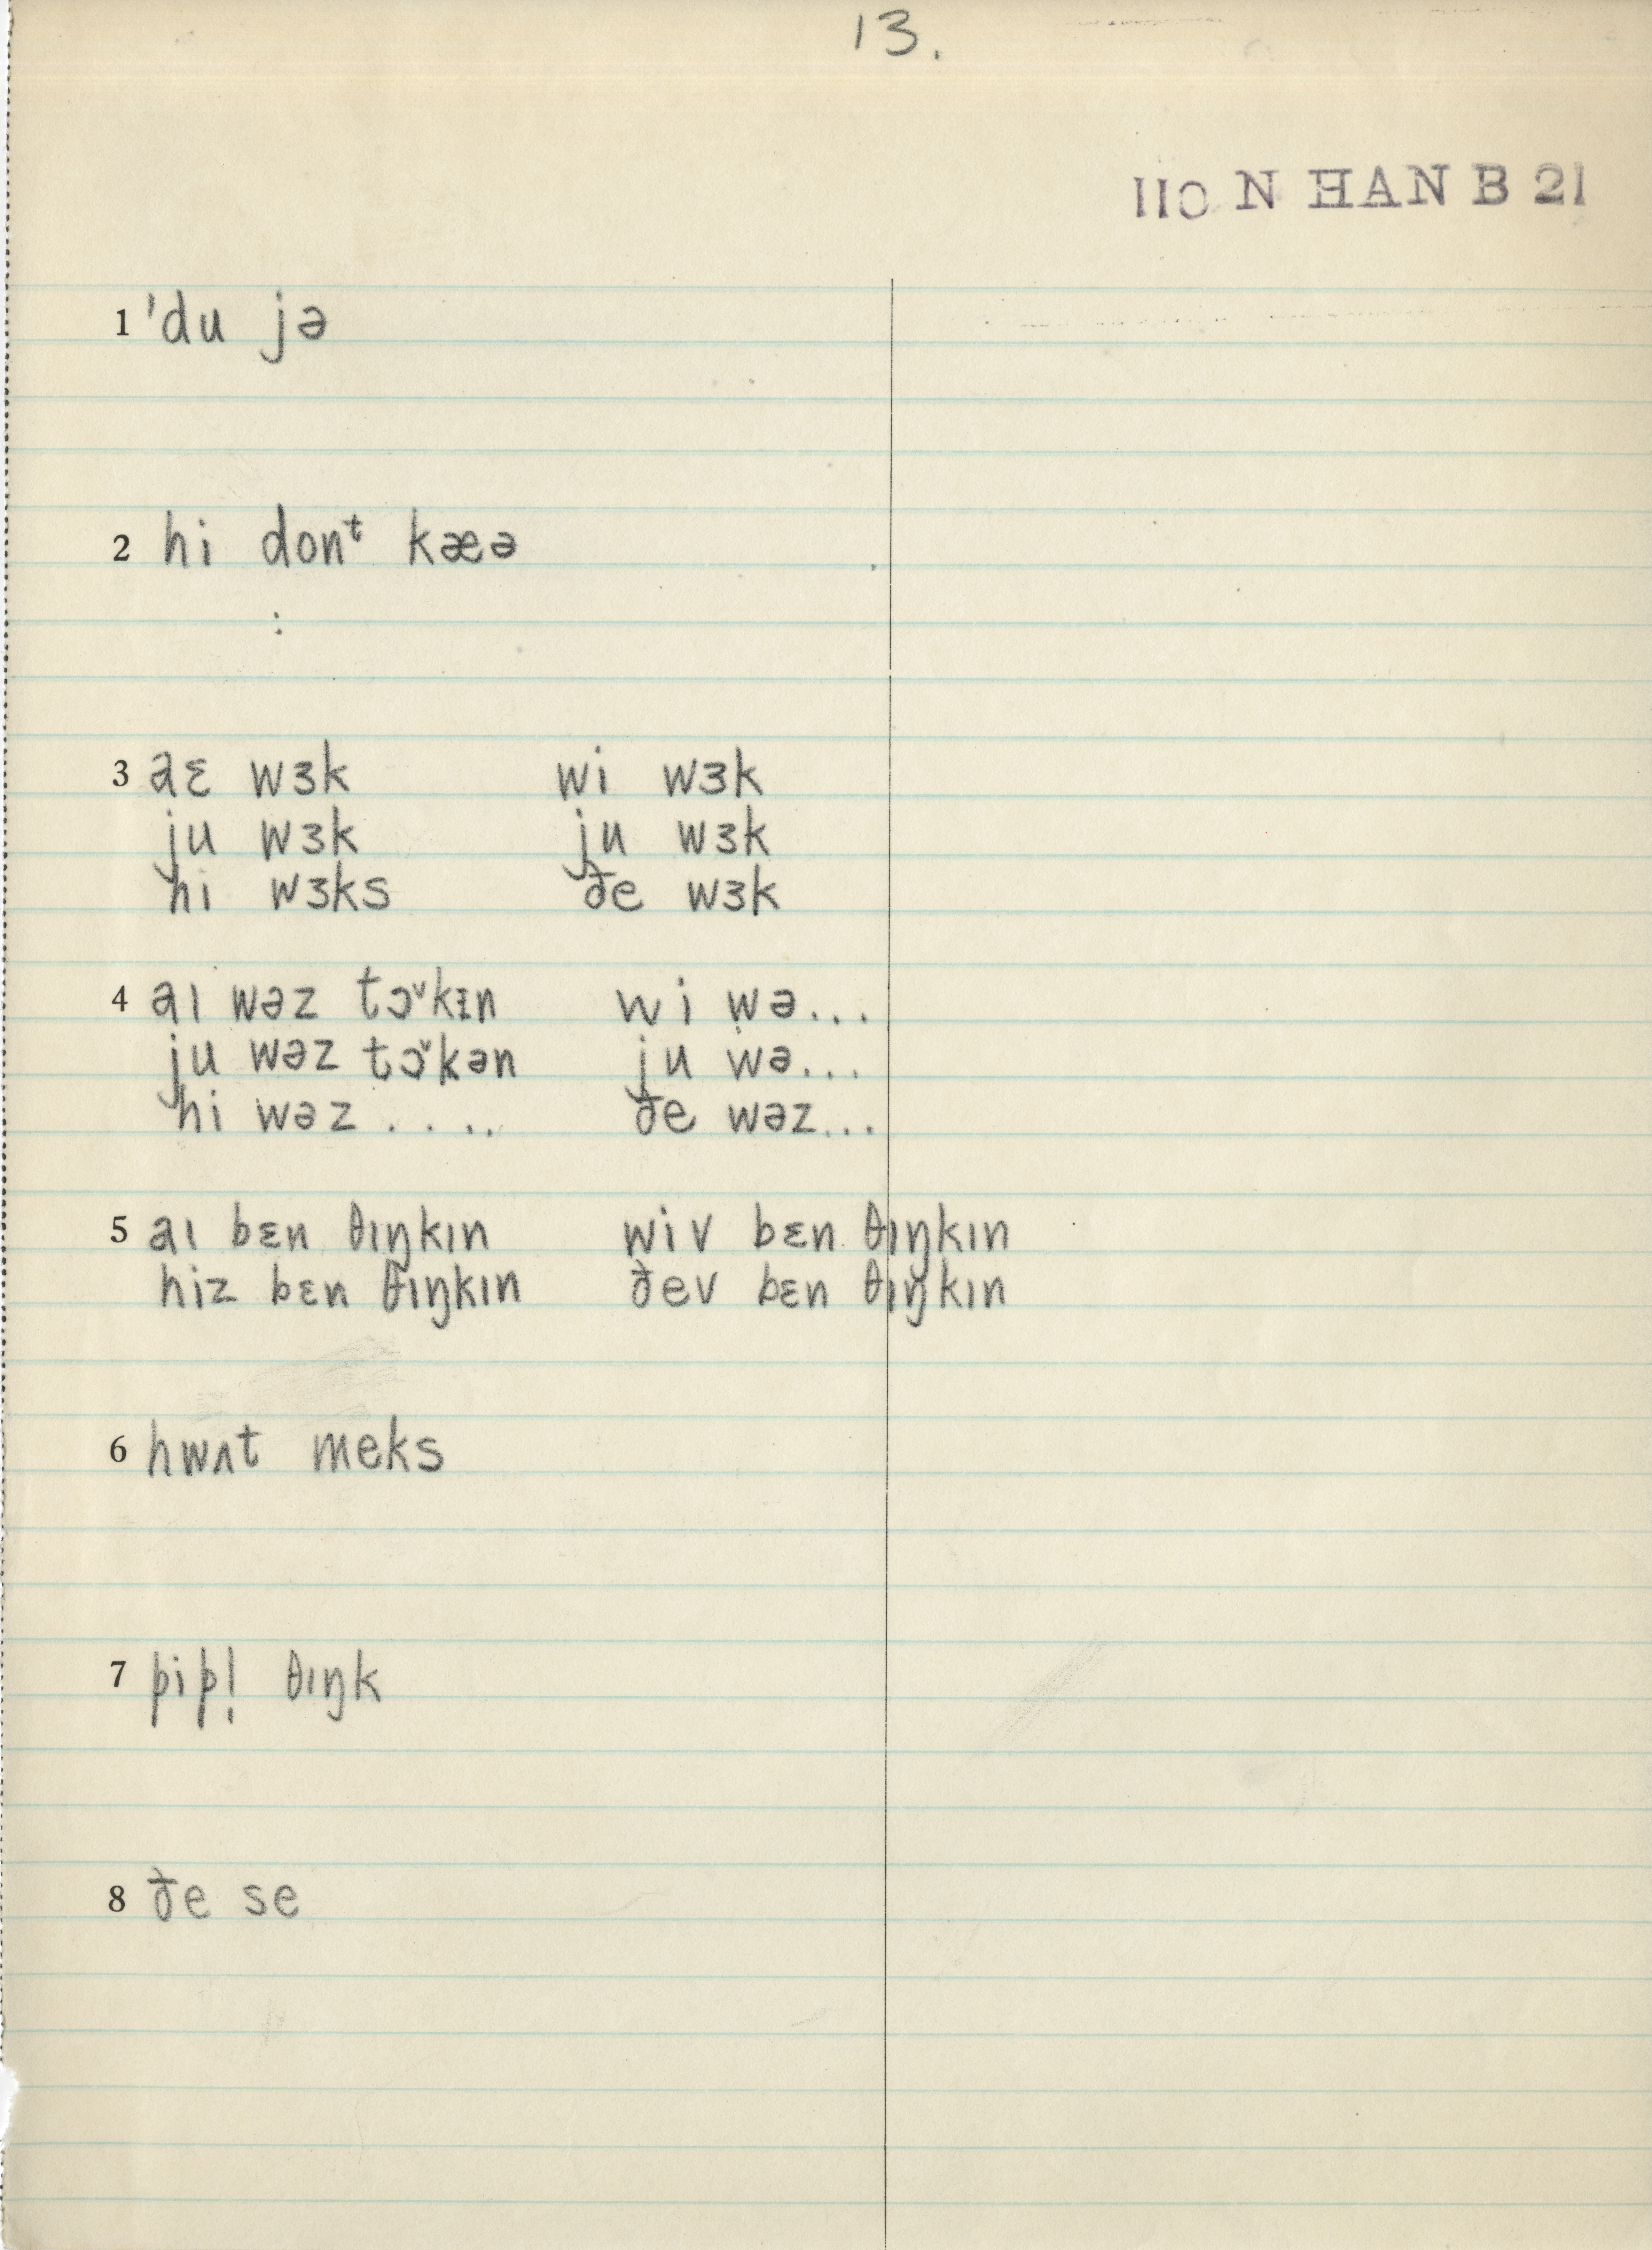 13.
110 N HAN B 21
1 'du jə
2 hi donᵗ kæə
3 aɛ wɜk wi wɜk
ju wɜk ju wɜk
hi wɜks ðe wɜk
4 aɪ wəz tɔ˅kɪn wi wə...
ju wəz tɔ˅kən ju wə...
hi wəz . . . . ðe wəz...
5 aɪ bɛn θɪŋkɪn wiv bɛn θɪŋkɪn
hiz bɛn θɪŋkɪn ðev bɛn θɪŋkɪn
6 hwʌt meks
7 pip! θɪŋk
8 ðe se